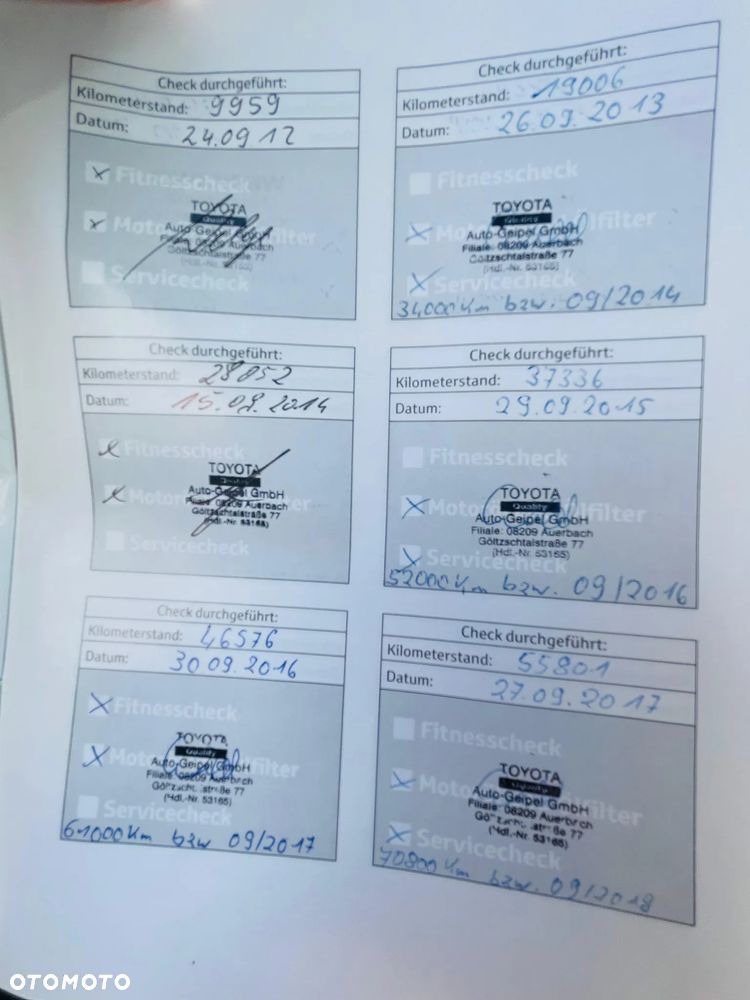 Check durchgeführt:
Kilometerstand: 9959
Datum: 24.09 12
Fitnesscheck
TOYOTA
Quality
Auto-Geipel GmbH
Filiale: 08209 Auerbach
Göltzschtalstraße 77
(Hdl.-Nr. 53165)
Servicecheck
Check durchgeführt:
Kilometerstand: 19006
Datum: 26.09.2013
Fitnesscheck
TOYOTA
Quality
Auto-Geipel GmbH
Filiale: 08209 Auerbach
Göltzschtalstraße 77
(Hdl.-Nr. 53165)
Servicecheck
34000 Km bzw. 09/2014
Check durchgeführt:
Kilometerstand: 28052
Datum: 15.09.2014
Fitnesscheck
TOYOTA
Quality
Auto-Geipel GmbH
Filiale: 08209 Auerbach
Göltzschtalstraße 77
(Hdl.-Nr. 53165)
Servicecheck
Check durchgeführt:
Kilometerstand: 37336
Datum: 29.09.2015
Fitnesscheck
TOYOTA
Quality
Auto-Geipel GmbH
Filiale: 08209 Auerbach
Göltzschtalstraße 77
(Hdl.-Nr. 53165)
Servicecheck
52000 Km bzw. 09/2016
Check durchgeführt:
Kilometerstand: 46576
Datum: 30.09.2016
Fitnesscheck
TOYOTA
Quality
Auto-Geipel GmbH
Filiale: 08209 Auerbach
(Hdl.-Nr. 53165)
Servicecheck
61000 Km bzw 09/2017
Check durchgeführt:
Kilometerstand: 55801
Datum: 27.09.2017
Fitnesscheck
TOYOTA
Quality
Auto-Geipel GmbH
Filiale: 08209 Auerbach
(Hdl.-Nr. 53165)
Servicecheck
70800 Km bzw. 09/2018
OTOMOTO